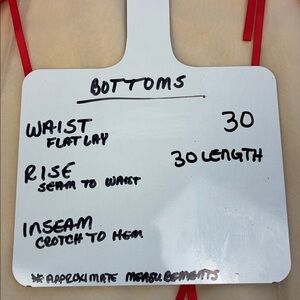 BOTTOMS
WAIST 30
FLAT LAY
RISE 30 LENGTH
SEAM TO WAIST
INSEAM
CROTCH TO HEM
*APPROXIMATE MEASUREMENTS